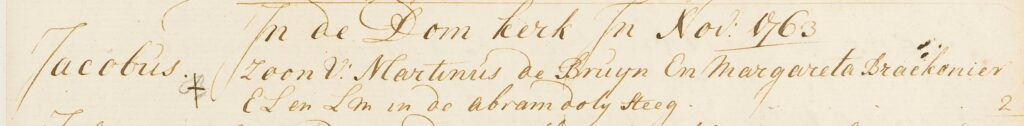 In de Dom kerk In Nov: 1763
Jacobus. Zoon V: Martinus de Bruyn En Margareta Braekonier
E L en L m in de abramdoly steeg. 2